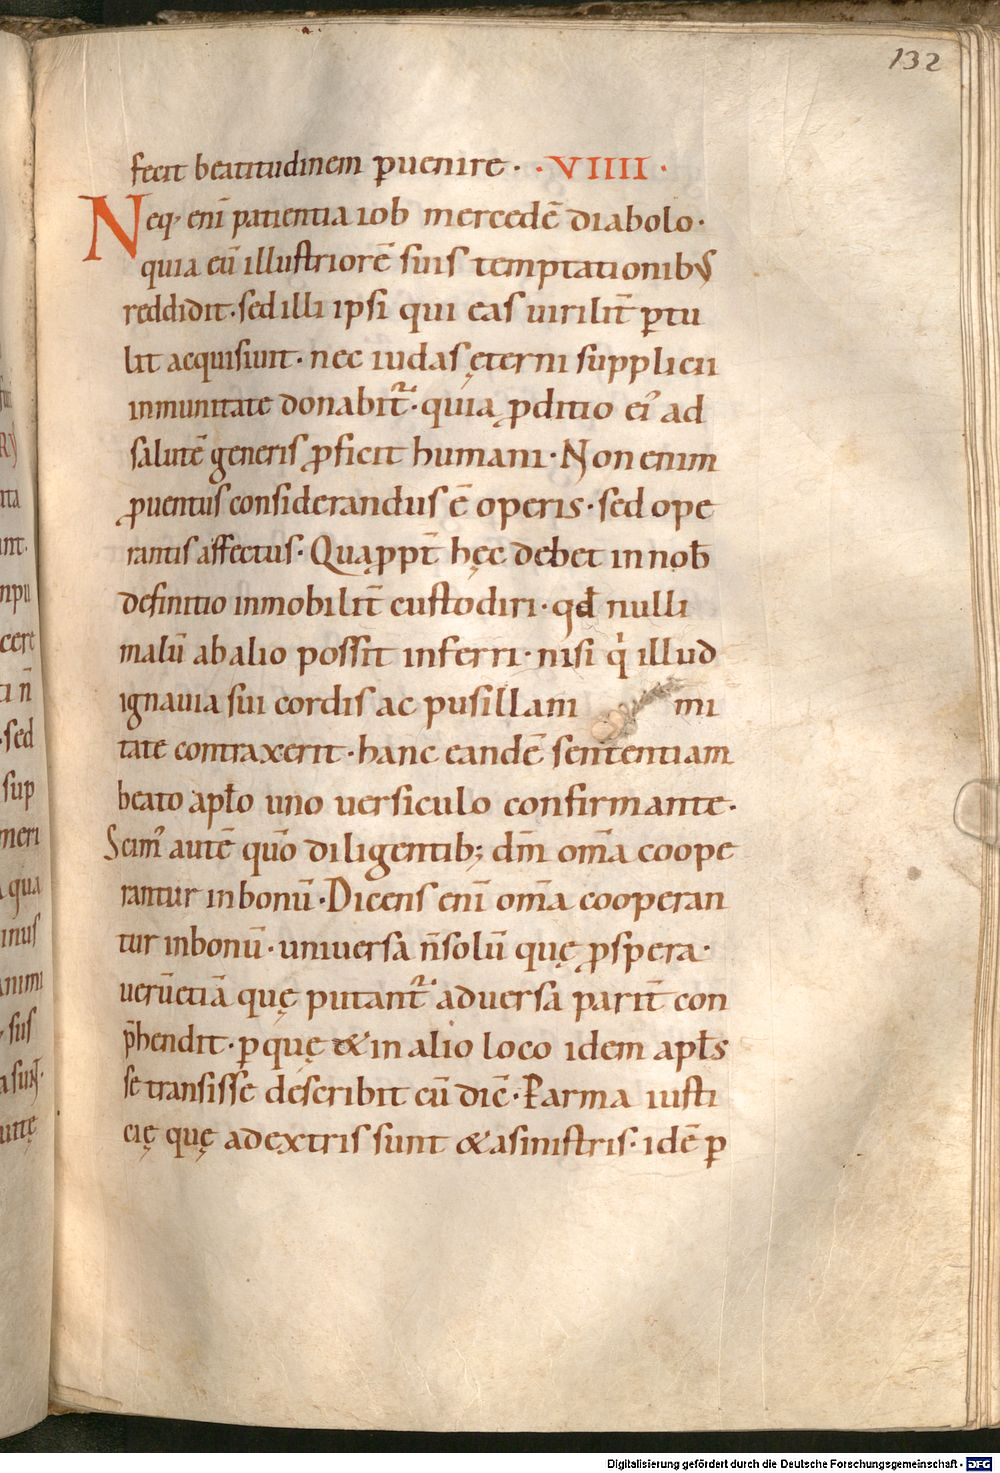 132
fecit beatitudinem p̄uenire · · VIIII ·
Neq· eni͞ patientia iob mercedē diabolo·
quia eū illustriorē suis temptationibꝰ
reddidit· sed illi ipsi qui eas uirilit͞ ꝑtu
lit acquisiuit· nec iudas ęterni supplicii
inmunitate donabit͛· quia ꝑditio ei᾽ ad
salutē generis ꝓficit humani· Non enim
ꝓuentus considerandus ē operis· sed ope
rantis affectus· Quaꝓpt͞ hęc debet in nob̄
definitio inmobilit͞ custodiri· qđ nulli
malū ab alio possit inferri· nisi qͥ illud
ignauia sui cordis ac pusillani mi
tate contraxerit· hanc eandē sententiam
beato apło uno uersiculo confirmante·
Scim᾽ autē quō diligentib; dm̄ om̄a coope
rantur in bonū· Dicens eni͞ om̄a cooperan
tur in bonū· uniuersa n̄ solū quę ꝓspera·
uerū etiā quę putant͛ aduersa parit͞ con
p̄hendit· ꝑ quę & in alio loco idem apłs
se transisse describit cū dic̄· P arma iusti
cię quę a dextris sunt & a sinistris· idē ꝑ
Digitalisierung gefördert durch die Deutsche Forschungsgemeinschaft - DFG